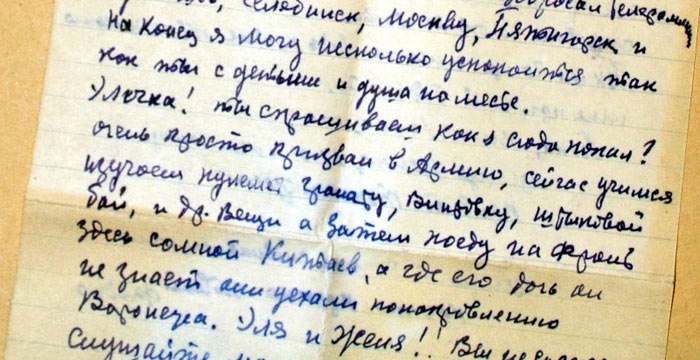 Челябинск, Москву, Пятигорск и
На конец я могу несколько успокоится так
как ты с детьми и душа на месте.
Улечка! ты спрашиваеш как я сюда попал?
очень просто призван в Армию, сейчас учимся
изучаем пулемет гранату, Винтовку, штыковой
бой, и др. Вещи а Затем поеду на Фронт
Здесь сомной Китаев, а где его дочь он
не знает они уехали понаправлению
Воронежа. Уля и Женя!! Вы
Слушайте